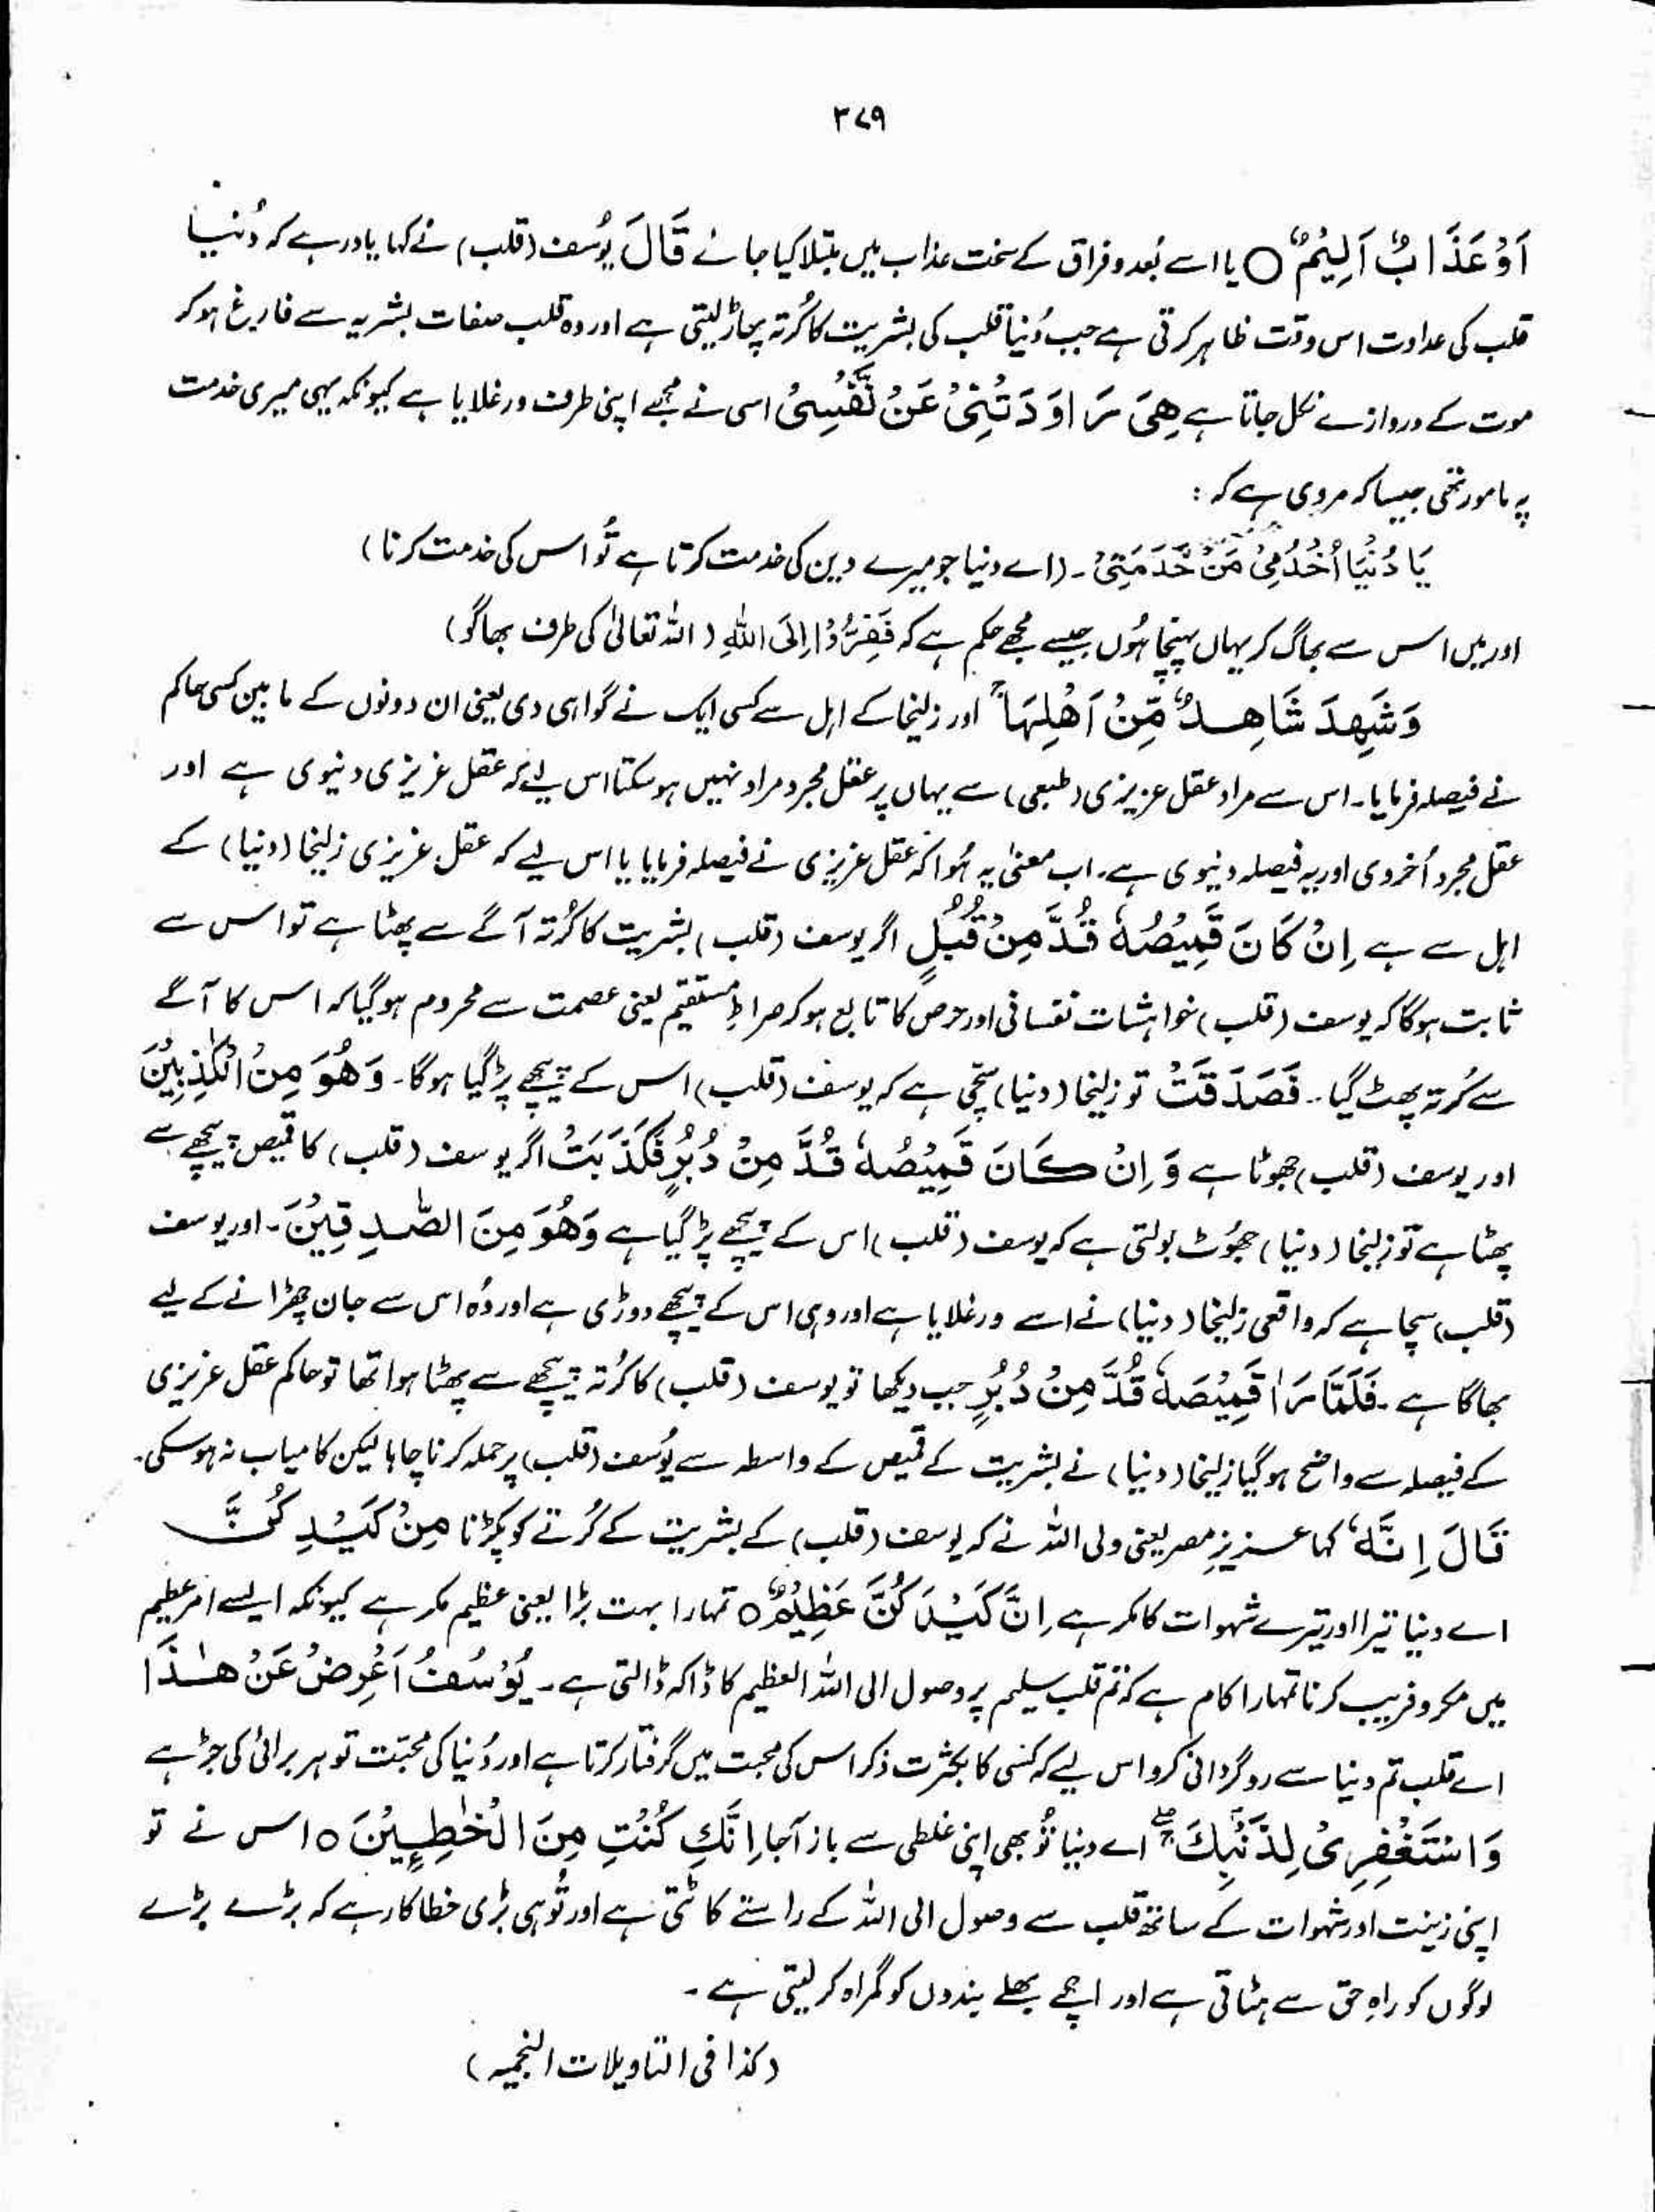 ۳۷۹
اَوْ عَذَابٌ اَلِیْمٌ ○ یا اسے بُعد و فراق کے سخت عذاب میں مبتلا کیا جائے قَالَ یُوسف (قلب) نے کہا یاد رہے کہ دُنیا
قلب کی عداوت اس وقت ظاہر کرتی ہے جب دُنیا قلب کی بشریت کا کُرتہ پھاڑ لیتی ہے اور وہ قلب صفات بشریہ سے فارغ ہو کر
موت کے دروازے نکل جاتا ہے هِیَ رَاوَدَتْنِیْ عَنْ نَّفْسِیْ اسی نے مجھے اپنی طرف ورغلایا ہے کیونکہ یہی میری خدمت
پہ مامور تھی جیسا کہ مروی ہے کہ :
یَا دُنْیَا اُخْدُمِیْ مَنْ خَدَمَنِیْ ۔ (اے دنیا جو میرے دین کی خدمت کرتا ہے تُو اس کی خدمت کرنا)
اور میں اس سے بھاگ کر یہاں پہنچا ہُوں جیسے مجھے حکم ہے کہ فَفِرُّوْا اِلَی اللّٰهِ (اللہ تعالیٰ کی طرف بھاگو)
وَشَهِدَ شَاهِدٌ مِّنْ اَهْلِهَا ۚ اور زلیخا کے اہل سے کسی ایک نے گواہی دی یعنی ان دونوں کے مابین کسی حاکم
نے فیصلہ فرمایا۔ اس سے مراد عقل عزیزی (طبعی) ہے یہاں پر عقل مجرد مراد نہیں ہو سکتا اس لیے کہ عقل غریزی دنیوی ہے اور
عقل مجرد اُخروی اور یہ فیصلہ دنیوی ہے۔ اب معنیٰ یہ ہُوا کہ عقل غریزی نے فیصلہ فرمایا یا اس لیے کہ عقل غریزی زلیخا (دنیا) کے
اہل سے ہے اِنْ کَانَ قَمِیْصُهٗ قُدَّ مِنْ قُبُلٍ اگر یوسف (قلب) بشریت کا کُرتہ آگے سے پھٹا ہے تو اس سے
ثابت ہوگا کہ یوسف (قلب) خواہشات نفسانی اور حرص کا تابع ہو کر صراطِ مستقیم یعنی عصمت سے محروم ہو گیا کہ اس کا آگے
سے کُرتہ پھٹ گیا۔ فَصَدَقَتْ تو زلیخا (دنیا) سچّی ہے کہ یوسف (قلب) اس کے پیچھے پڑ گیا ہوگا۔ وَهُوَ مِنَ الْکٰذِبِیْنَ
اور یوسف (قلب) جھوٹا ہے وَاِنْ کَانَ قَمِیْصُهٗ قُدَّ مِنْ دُبُرٍ فَکَذَبَتْ اگر یوسف (قلب) کا قمیص پیچھے سے
پھٹا ہے تو زلیخا (دنیا) جھُوٹ بولتی ہے کہ یوسف (قلب) اس کے پیچھے پڑ گیا ہے وَهُوَ مِنَ الصّٰدِقِیْنَ۔ اور یوسف
(قلب) سچا ہے کہ واقعی زلیخا (دنیا) نے اسے ورغلایا ہے اور وہی اس کے پیچھے دوڑی ہے اور وُہ اس سے جان چھڑانے کے لیے
بھاگا ہے ۔ فَلَمَّا رَاٰ قَمِیْصَهٗ قُدَّ مِنْ دُبُرٍ جب دیکھا تو یوسف (قلب) کا کُرتہ پیچھے سے پھٹا ہوا تھا تو حاکم عقل غریزی
کے فیصلہ سے واضح ہو گیا زلیخا (دنیا) نے بشریت کے قمیص کے واسطہ سے یُوسف (قلب) پر حملہ کرنا چاہا لیکن کامیاب نہ ہو سکی۔
قَالَ اِنَّهٗ کہا عزیزِ مصر یعنی ولی اللہ نے کہ یوسف (قلب) کے بشریت کے کُرتے کو پکڑنا مِنْ کَیْدِ کُنَّ
اے دنیا تیرا اور تیرے شہوات کا مکر ہے اِنَّ کَیْدَ کُنَّ عَظِیْمٌ ○ تمہارا بہت بڑا یعنی عظیم مکر ہے کیونکہ ایسے امرِ عظیم
میں مکر و فریب کرنا تمہارا کام ہے کہ تم قلب سلیم پر وصول الی اللہ العظیم کا ڈاکہ ڈالتی ہے ۔ یُوْسُفُ اَعْرِضْ عَنْ هٰذَا
اے قلب تم دنیا سے روگردانی کرو اس لیے کہ کسی کا بکثرت ذکر اس کی محبت میں گرفتار کرتا ہے اور دُنیا کی محبّت تو ہر برائی کی جڑ ہے
وَاسْتَغْفِرِیْ لِذَنْۢبِكِ ۖ اے دنیا تُو بھی اپنی غلطی سے باز آجا اِنَّكِ کُنْتِ مِنَ الْخٰطِئِیْنَ ○ اس نے تو
اپنی زینت اور شہوات کے ساتھ قلب سے وصول الی اللہ کے راستے کاٹتی ہے اور تُو ہی بڑی خطاکار ہے کہ بڑے بڑے
لوگوں کو راہِ حق سے ہٹاتی ہے اور اچھے بھلے بندوں کو گمراہ کر لیتی ہے ۔
(کذا فی التاویلات النجمیہ)